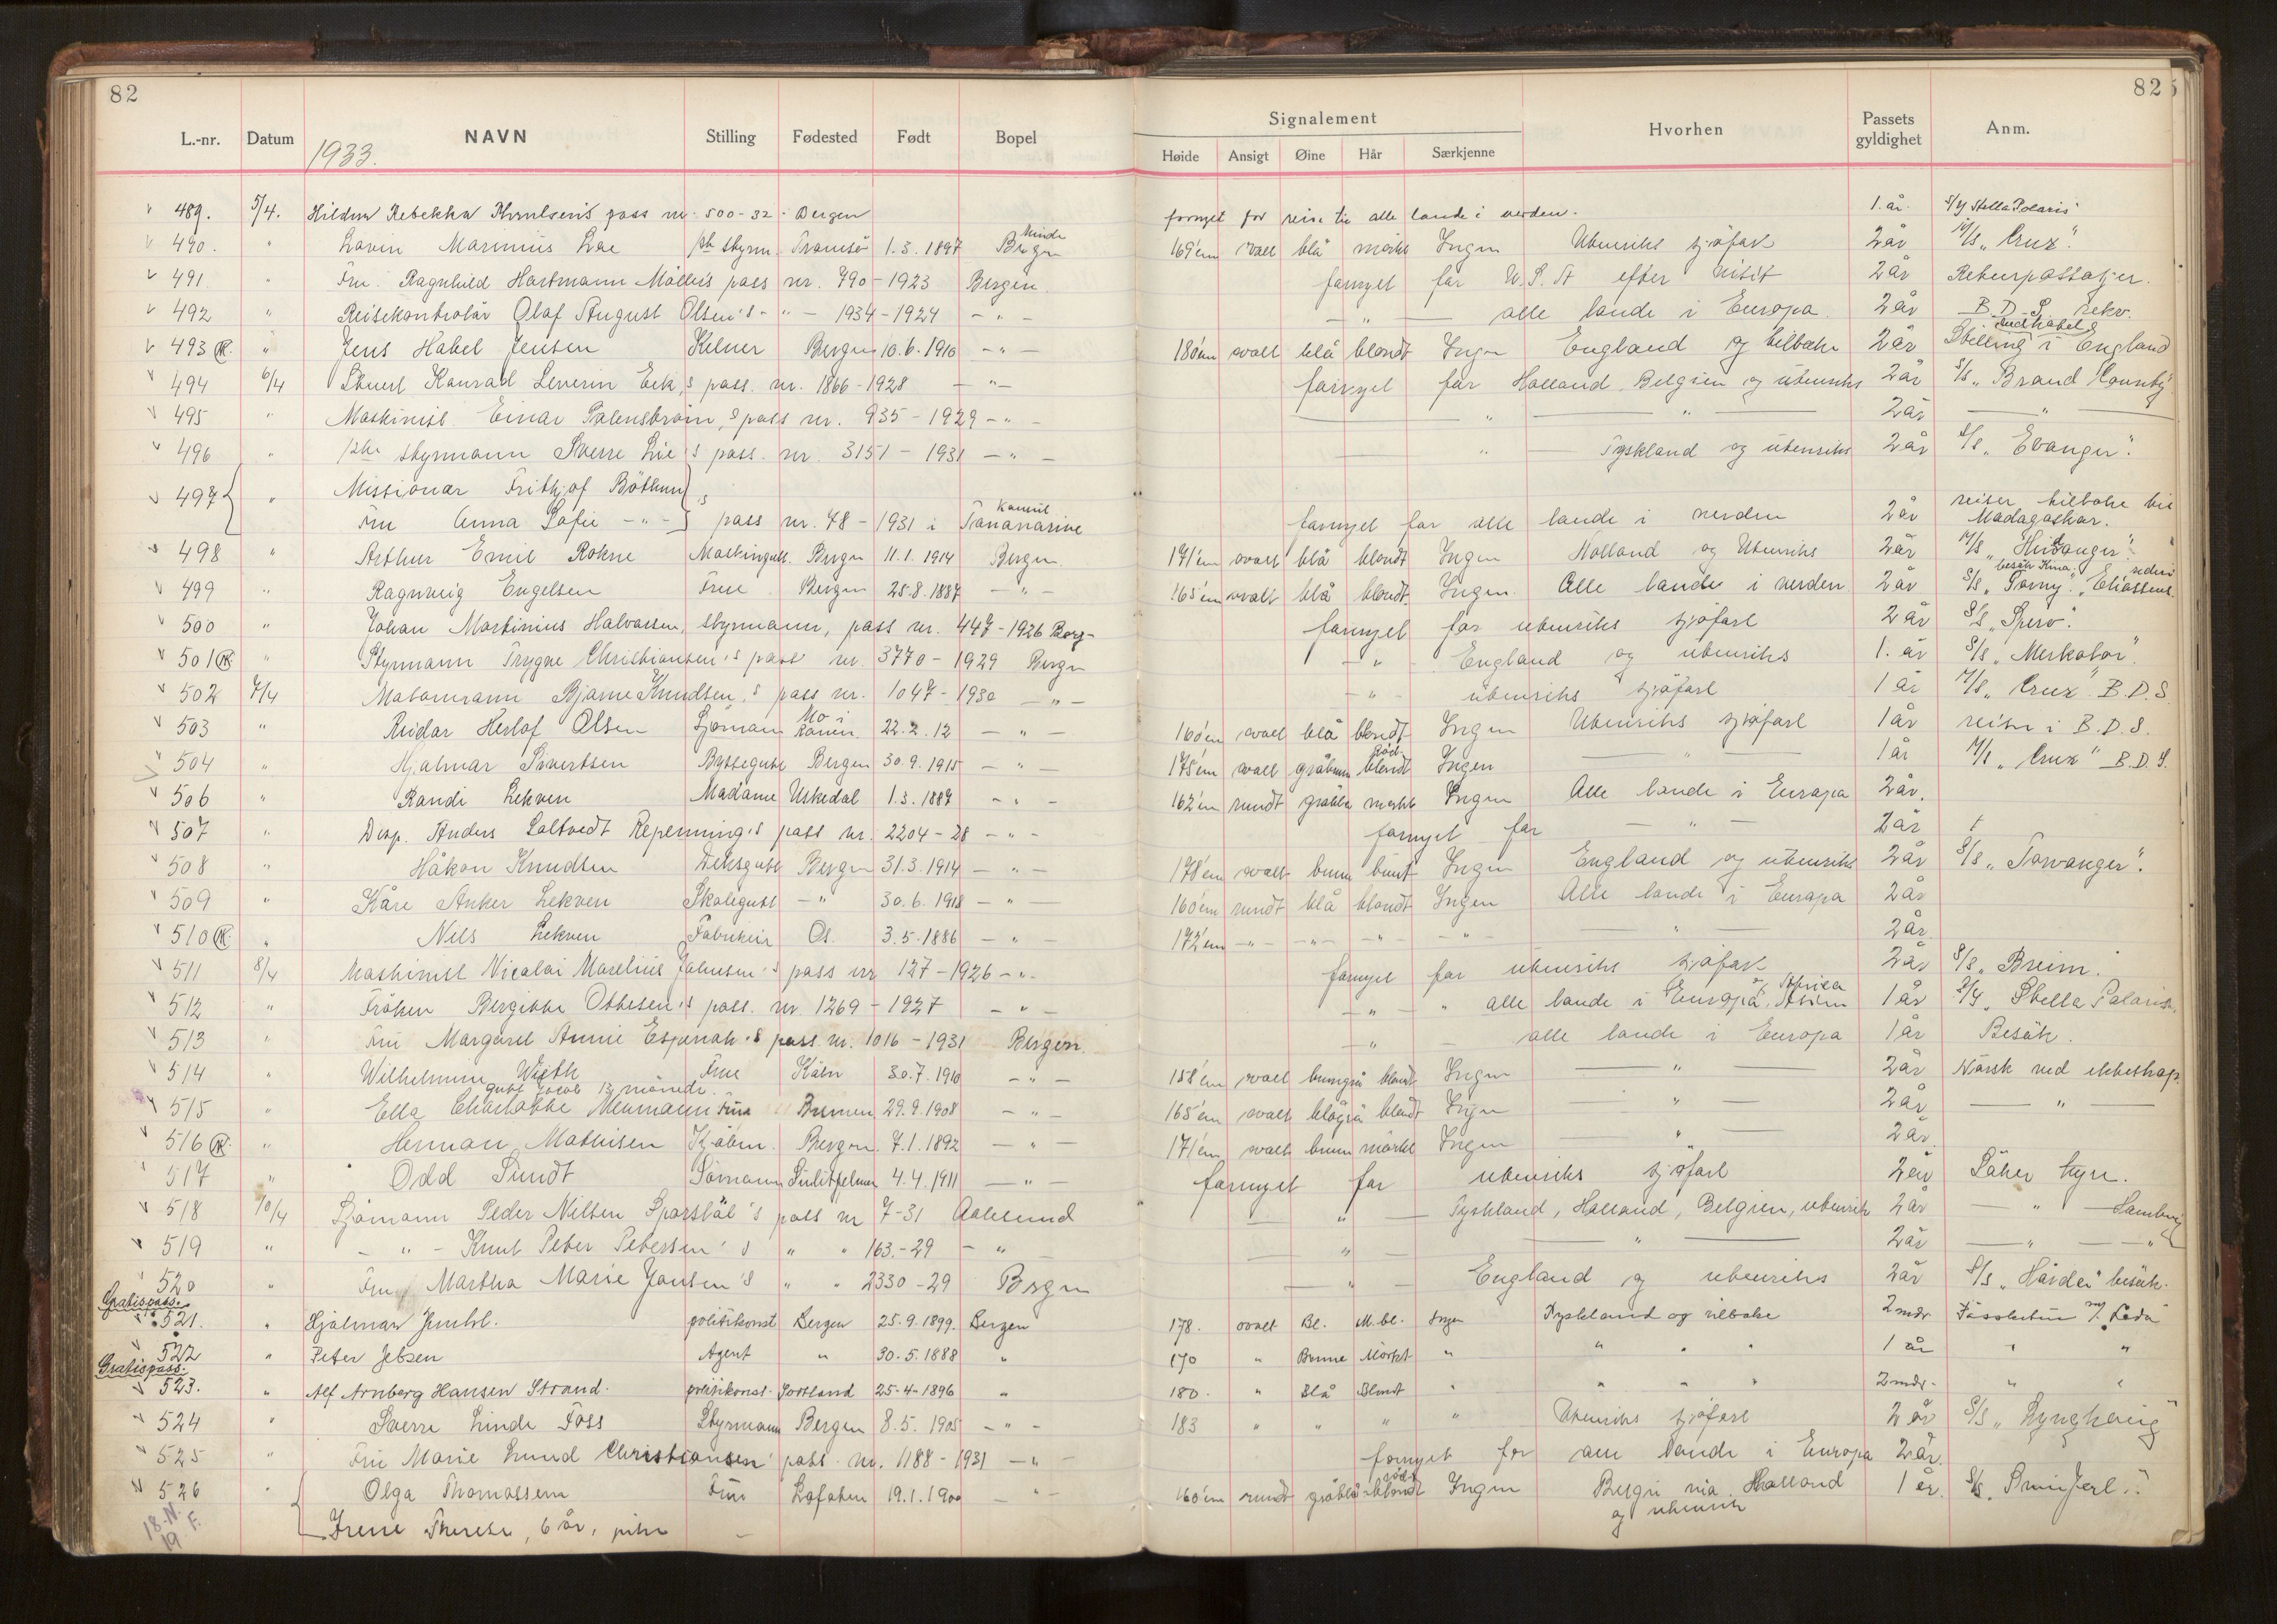 82
82
Signalement
L.-nr. Datum NAVN Stilling Fødested Født Bopel
Høide Ansigt Øine Hår Særkjenne Hvorhen Passets gyldighet Anm.
1933.
489. 5/4. pass nr. 500-32 Bergen fornyet for reise til alle lande i verden. 1. år. S/Y Stella Polaris
490. " Marinius styrm. Tromsø 1.3.1897 Bergen 169 cm ovalt blå mørkt Ingen Utenriks sjøfart 2 år M/S „Crux".
491. " Fru Ragnhild Hartmann pass nr. 790-1923 Bergen fornyet for U.S.A efter visit 2 år Returpassasjer.
492 " Reisekontrolør Olaf August Olsen's - " - 1934-1924 - " - - " - alle lande i Europa 2 år B.D.S. rekv.
493 " Jens Habel Jensen Kelner Bergen 10.6.1910 - " - 180 cm ovalt blå blondt Ingen England og tilbake 2 år Stilling i England
494 6/4 Konrad Severin Eek's pass. nr. 1866-1928 - " - fornyet for Holland, Belgien og utenriks 2 år S/S „Brand County"
495 " Maskinist Einar pass nr. 935-1929 - " - " " 2 år "
496 " styrmann Sverre Lie's pass. nr. 3151-1931 - " - " Tyskland og utenriks 2 år S/S „Evanger".
497 " Missionær Frithjof
Fru Anna Sofie - " - 's pass nr. 78-1931 i Tananarive fornyet for alle lande i verden 2 år reiser tilbake til Madagaskar.
498 " Arthur Emil Rokne Bergen 11.1.1914 Bergen 171 cm ovalt blå blondt Ingen Holland og Utenriks 2 år M/S „Hindanger".
499 " Ragnveig Engelsen Frue Bergen 25.8.1887 - " - 165 cm ovalt blå blondt Ingen Alle lande i verden 2 år S/S „Torny". besøk Kina.
500 " Johan Martinius Halvorsen, styrmann, pass nr. 447-1926 Berg- fornyet for utenriks sjøfart 2 år S/S „Spero".
501 " Styrmann Trygve Christiansen's pass nr. 3770-1929 Bergen - " - England og utenriks 1. år S/S „Merkator".
502 7/4 Matormann Bjarne Knudsen's pass nr. 1047-1930 - " - - " - utenriks sjøfart 1 år M/S „Crux" B.D.S
503 " Reidar Herlof Olsen Sjømann Mo i Ranen. 22.2.12 - " - 160 cm ovalt blå blondt Ingen Utenriks sjøfart 1 år reiser i B.D.S.
504 " Hjalmar Sivertsen Byssegutt Bergen 30.9.1915 - " - 175 cm ovalt gråbrun rød-blondt Ingen " 1 år M/S „Crux" B.D.S.
506 " Randi Lekven Madame Uskedal 1.3.1887 - " - 162 cm rundt gråblå mørkt Ingen Alle lande i Europa 2 år.
507 " Disp. Anders Saltvedt Repenning's pass nr. 2204-28 - " - fornyet for - " - 2 år
508 " Håkon Knudsen Dekksgutt Bergen 31.3.1914 - " - 178 cm ovalt brun brunt Ingen England og utenriks 2 år S/S „Torvanger".
509 " Kåre Anker Lekven Skolegutt - " 30.6.1918 - " - 160 cm rundt blå blondt Ingen Alle lande i Europa 2 år
510 " Nils Lekven Fabrikeier Os. 3.5.1886 - " - 172 cm - " - - " - - " - - " - " 2 år.
511 8/4 Maskinist Nicolai Marelius Johnsen's pass nr 127-1926 - " - fornyet for utenriks sjøfart 2 år S/S „Breim".
512 " Frøken Bergitte Ottesen's pass. nr 1269-1927 - " - - " - " alle lande i Europa, Afrika, Asien 1 år S/Y „Stella Polaris".
513 " Fru Margaret Annie pass nr. 1016-1931 Bergen. - " - alle lande i Europa 1 år Besøk.
514 " Wilhelmine Wieth Frue Køln 30.7.1910 - " - 158 cm ovalt brungrå blondt Ingen - " - 2 år Norsk ved ekteskap.
gutt Jacob 13 måneder.
515 " Ella Charlotte Neumann Frue Bremen 29.9.1908 - " - 165 cm ovalt blågrå blondt Ingen - " - 2 år - " -
516 " Herman Mathisen Kjøbm. Bergen 7.1.1892 - " - 171 cm ovalt brun mørkt Ingen - " - 2 år.
517 " Odd Sundt Sjømann Sulitjelma 4.4.1911 - " - fornyet for utenriks sjøfart 2 år Søker hyre.
518 10/4 Sjømann Peder Nilsen pass nr 7-31 Aalesund - " - Tyskland, Holland, Belgien, utenriks 2 år - " - Hamburg
519 " - " - Knut Peter Petersen's " " 163.-29 - " - - " - " 2 år - " - - " -
520 " Fru Martha Marie Jansen's " " 2330-29 Bergen - " - England og utenriks 2 år S/S „Hårdøi" besøk.
Gratispass.
521. " Hjalmar politikonst Bergen 25.9.1899. Bergen 178. ovalt Bl. M.bl. Ingen Tyskland og tilbake 2 mdr m/s „Leda"
522 " Peter Jebsen Agent " 30.5.1888 " 170 " Brune Mørkt " " " " 1 år " "
Gratispass.
523. " Alf Arnberg Hansen Strand. politikonst. Sortland 25-4-1896 " 180. " Blå Blondt " " " " 2 mdr. " "
524 " Sverre Linde Foss Styrmann Bergen 8.5.1905 - " - 183 " " " " Utenriks sjøfart 2 år S/S „Lynghaug"
525 " Fru Marie Lund Christiansen' pass. nr. 1188-1931 - " - fornyet for alle lande i Europa 2 år.
526 " Olga Thomassen Frue Lofoten 19.1.1900 - " - 160 cm rundt gråblå rødblondt Ingen Belgien via Holland 1 år. S/S
Irene Therese, 6 år, pike og utenriks
18.N.
19 F.